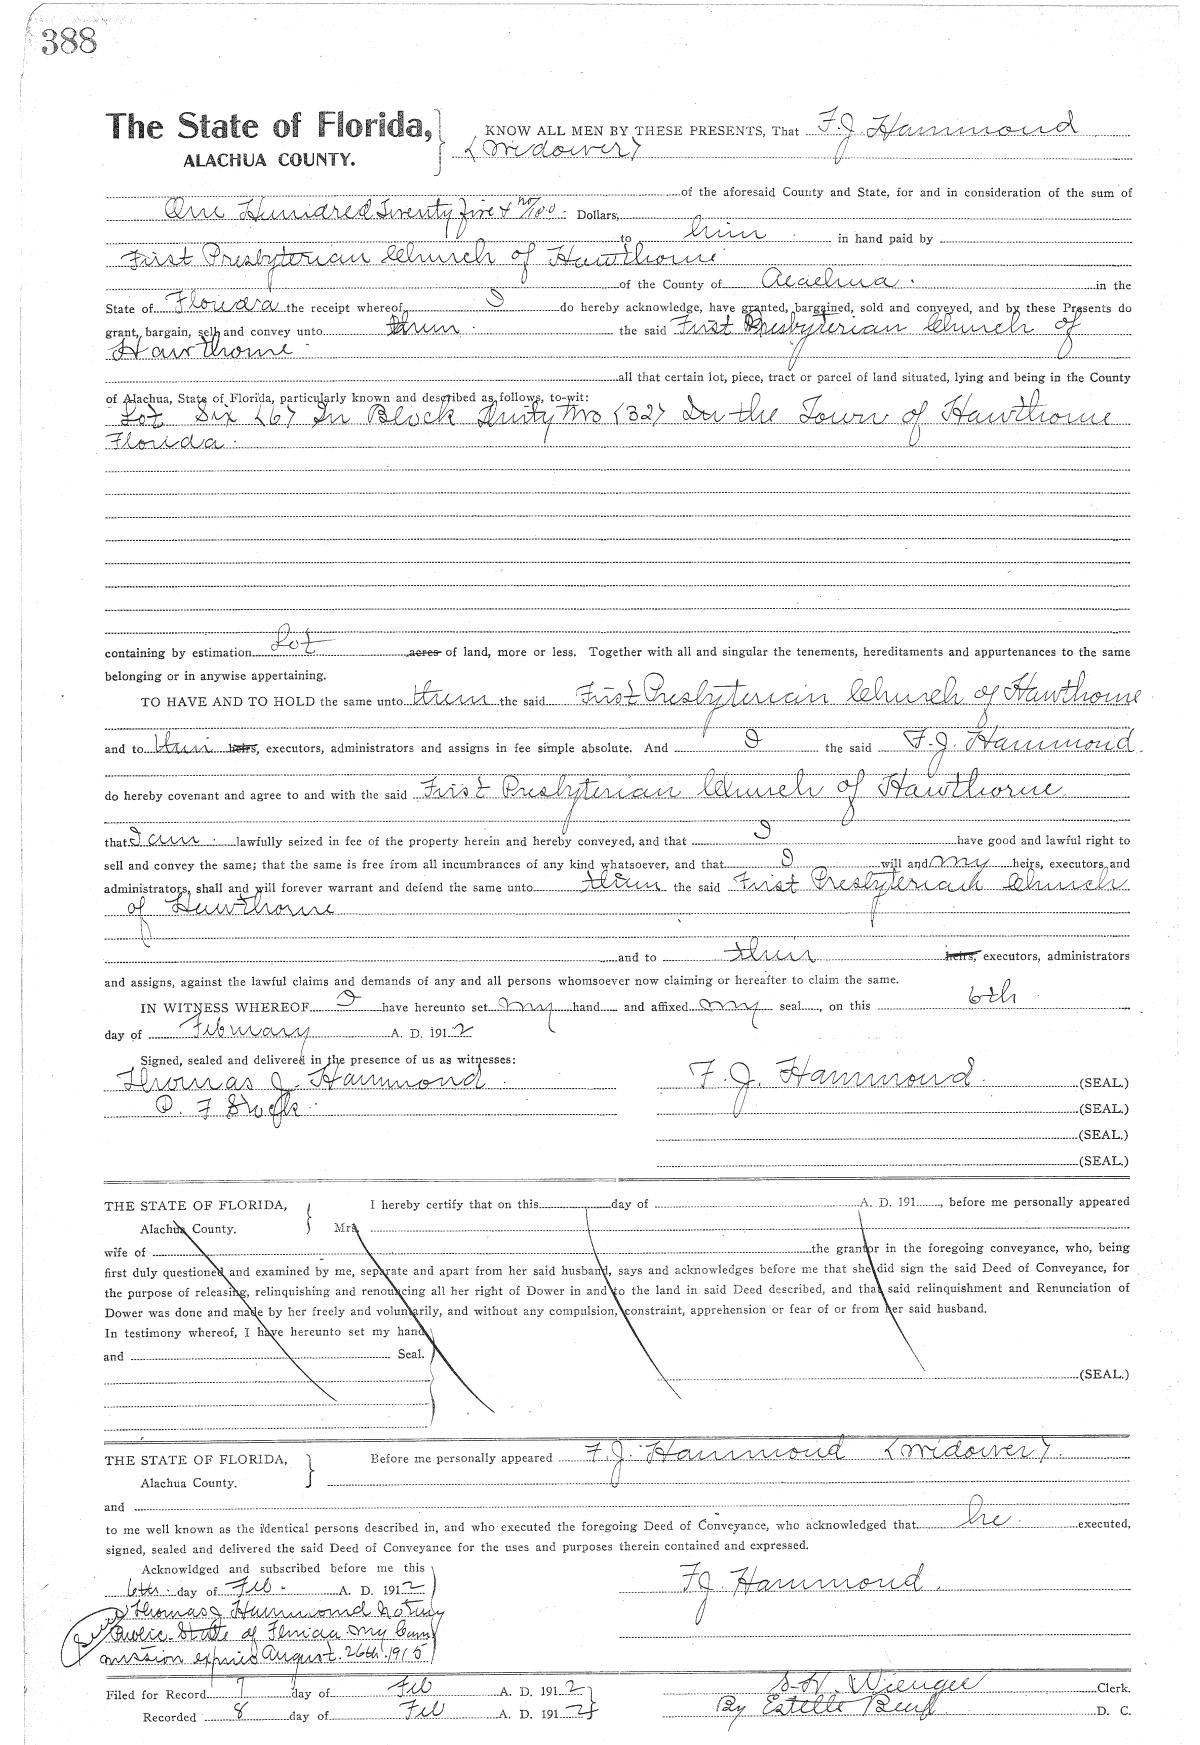 388
The State of Florida, KNOW ALL MEN BY THESE PRESENTS, That F. J. Hammond
ALACHUA COUNTY. (Widower)
of the aforesaid County and State, for and in consideration of the sum of
One Hundred Twenty five & no/100 Dollars,
to him in hand paid by
First Presbyterian Church of Hawthorne
of the County of Alachua in the
State of Florida the receipt whereof I do hereby acknowledge, have granted, bargained, sold and conveyed, and by these Presents do
grant, bargain, sell and convey unto them the said First Presbyterian Church of
Hawthorne
all that certain lot, piece, tract or parcel of land situated, lying and being in the County
of Alachua, State of Florida, particularly known and described as follows, to-wit:
Lot Six (6) In Block Thirty Two (32) In the Town of Hawthorne
Florida.
containing by estimation Lot acres of land, more or less. Together with all and singular the tenements, hereditaments and appurtenances to the same
belonging or in anywise appertaining.
TO HAVE AND TO HOLD the same unto them the said First Presbyterian Church of Hawthorne
and to their heirs, executors, administrators and assigns in fee simple absolute. And I the said F. J. Hammond
do hereby covenant and agree to and with the said First Presbyterian Church of Hawthorne
that I am lawfully seized in fee of the property herein and hereby conveyed, and that I have good and lawful right to
sell and convey the same; that the same is free from all incumbrances of any kind whatsoever, and that I will and my heirs, executors and
administrators, shall and will forever warrant and defend the same unto them the said First Presbyterian Church
of Hawthorne
and to their heirs, executors, administrators
and assigns, against the lawful claims and demands of any and all persons whomsoever now claiming or hereafter to claim the same.
IN WITNESS WHEREOF I have hereunto set my hand and affixed my seal, on this 6th
day of February A. D. 1912
Signed, sealed and delivered in the presence of us as witnesses:
Thomas J. Hammond F. J. Hammond (SEAL.)
(SEAL.)
(SEAL.)
(SEAL.)
THE STATE OF FLORIDA, I hereby certify that on this day of A. D. 191, before me personally appeared
Alachua County. Mrs.
wife of the grantor in the foregoing conveyance, who, being
first duly questioned and examined by me, separate and apart from her said husband, says and acknowledges before me that she did sign the said Deed of Conveyance, for
the purpose of releasing, relinquishing and renouncing all her right of Dower in and to the land in said Deed described, and that said relinquishment and Renunciation of
Dower was done and made by her freely and voluntarily, and without any compulsion, constraint, apprehension or fear of or from her said husband.
In testimony whereof, I have hereunto set my hand
and Seal.
(SEAL.)
THE STATE OF FLORIDA, Before me personally appeared F. J. Hammond (Widower).
Alachua County.
and
to me well known as the identical persons described in, and who executed the foregoing Deed of Conveyance, who acknowledged that he executed,
signed, sealed and delivered the said Deed of Conveyance for the uses and purposes therein contained and expressed.
Acknowldged and subscribed before me this
6th day of Feb. A. D. 1912 F. J. Hammond.
Thomas J Hammond Notary
Public State of Florida My Com
mission expires August 26th 1915
Filed for Record 7 day of Feb A. D. 1912 Clerk.
Recorded 8 day of Feb A. D. 1912 By Estelle D. C.